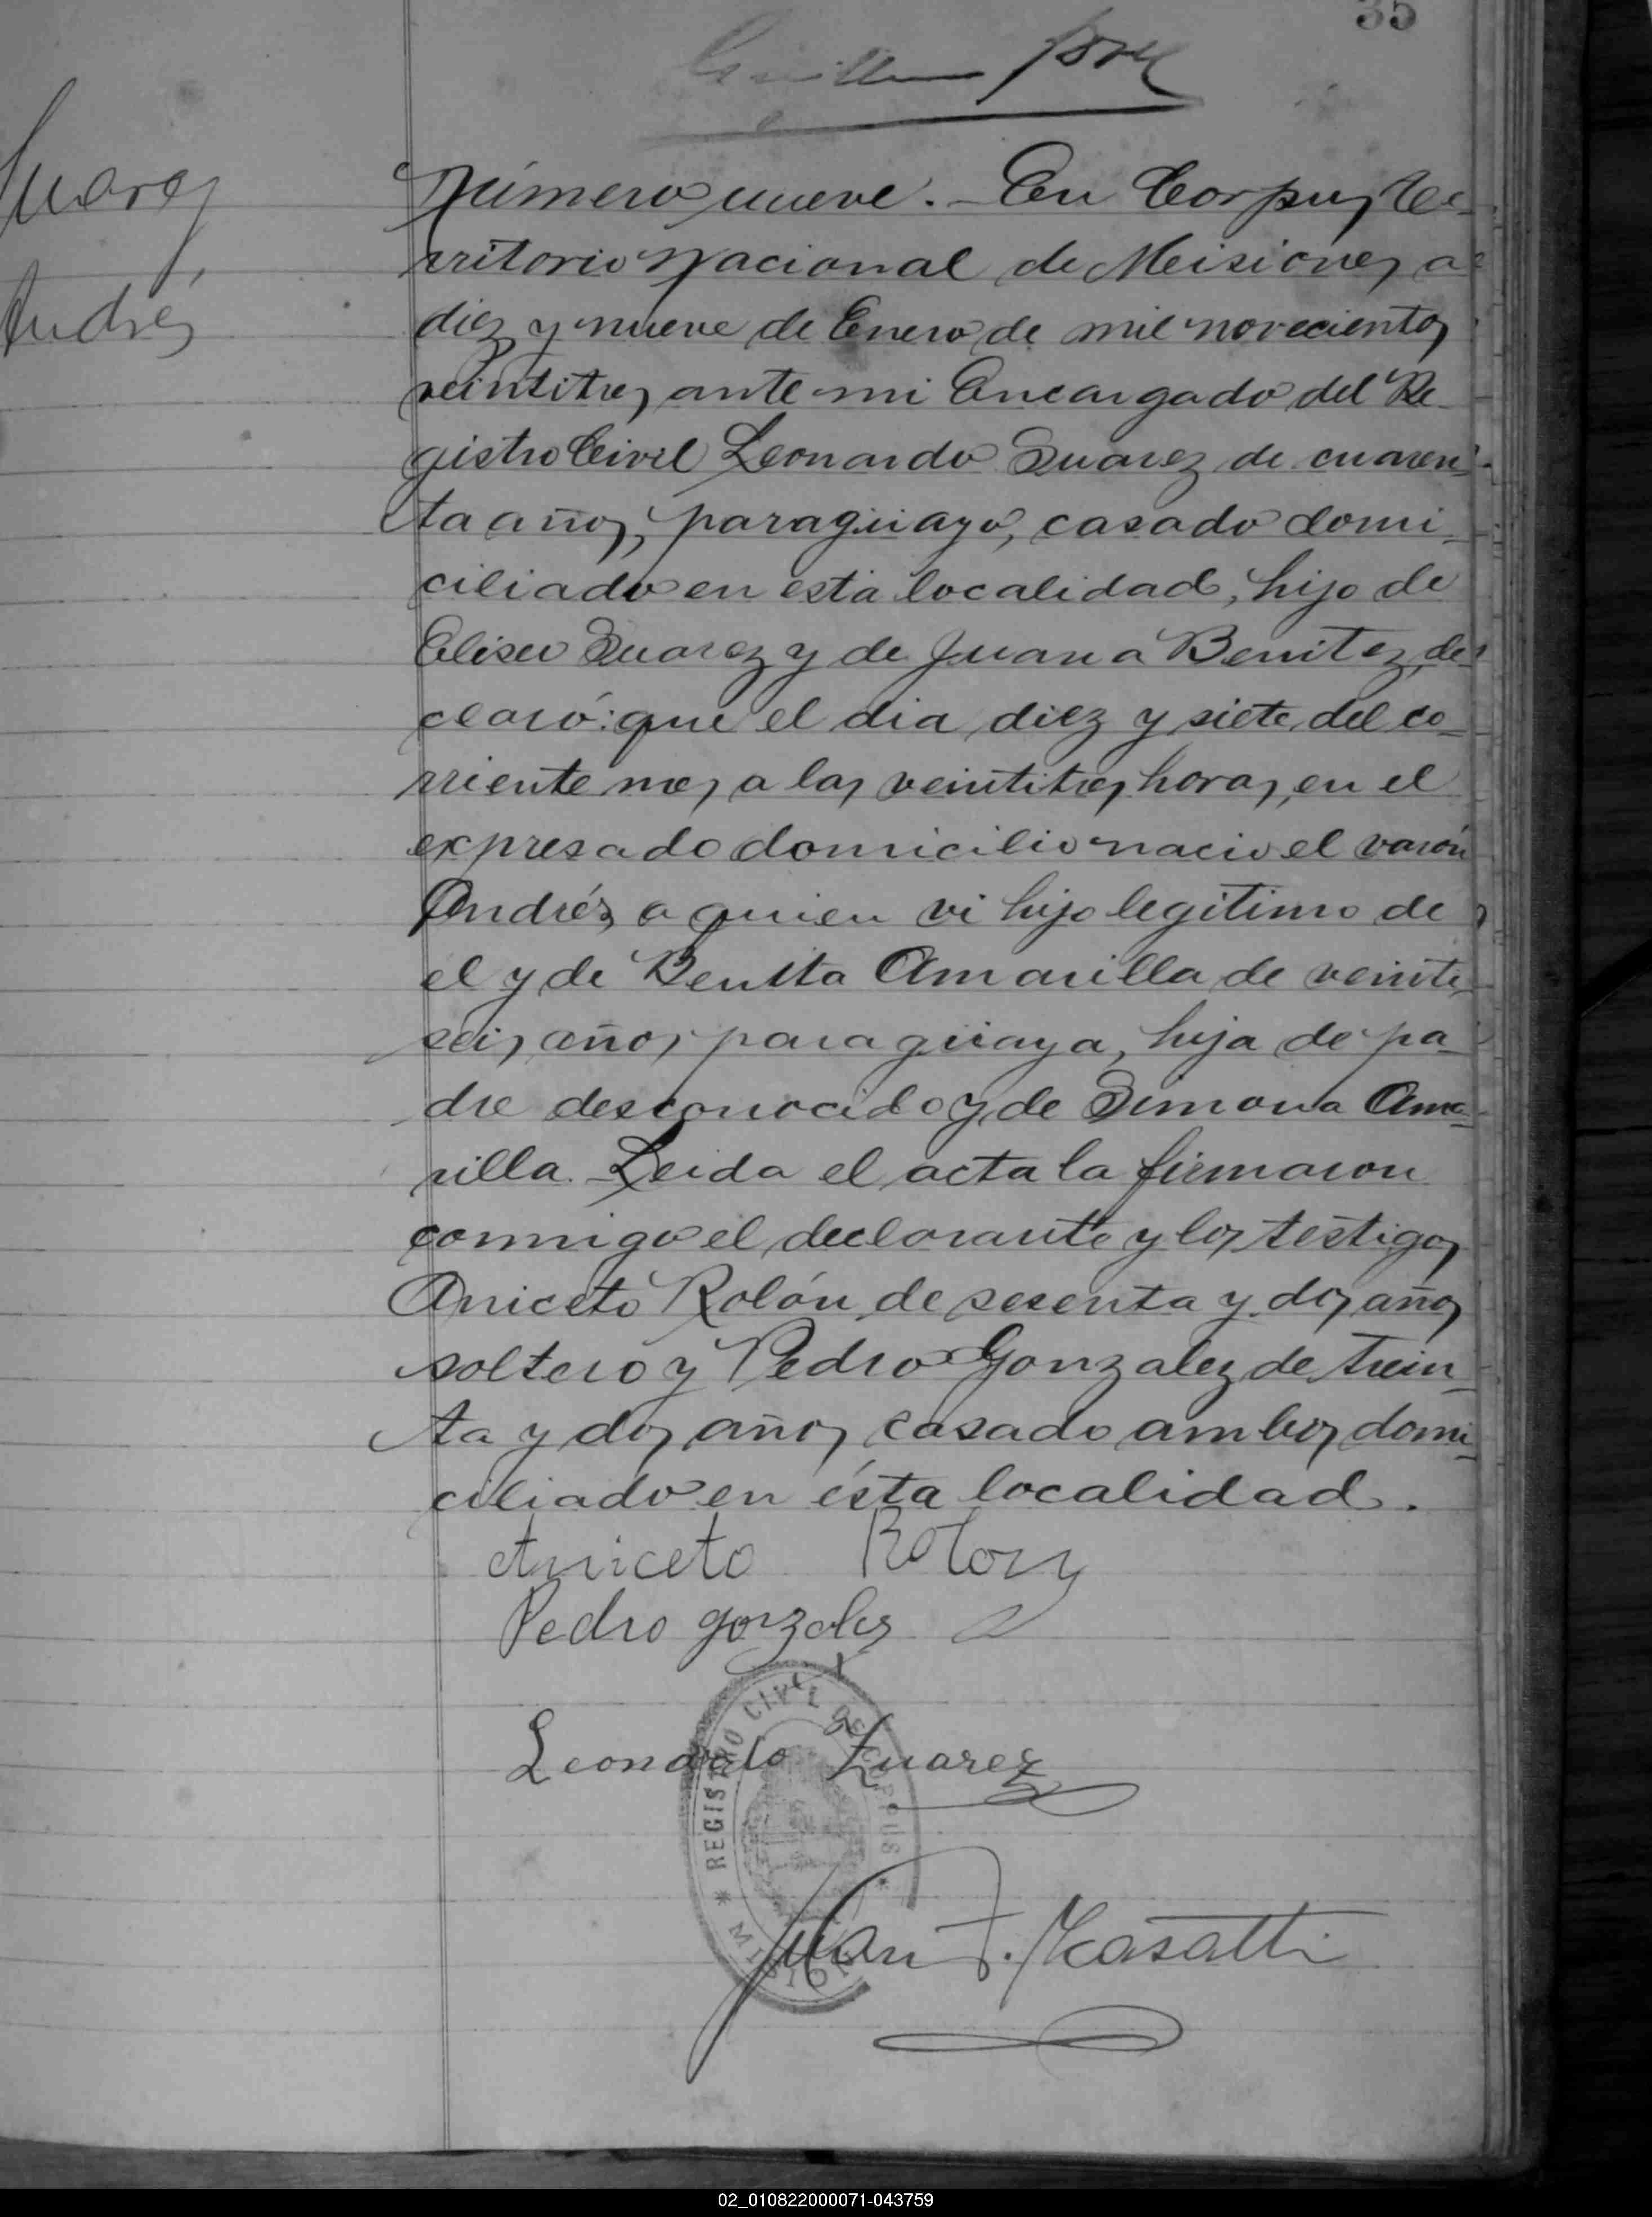 35
Suarez
Andrés
Número nueve. - En Corpus, Te-
rritorio Nacional de Misiones, a
diez y nueve de Enero de mil novecientos
veintitres, ante mi Encargado del Re-
gistro Civil Leonardo Suarez de cuaren-
ta años, paraguayo, casado domi-
ciliado en esta localidad, hijo de
Eliseo Suarez y de Juana Benitez, de-
claró: que el dia diez y siete del co-
rriente mes, a las veintitres horas, en el
expresado domicilio nacio el varón
Andrés, a quien vi hijo legitimo de
el y de Benita Amarilla de veinti
seis años paraguaya, hija de pa-
dre desconocido y de Simona Ama-
rilla. Leida el acta la firmaron
conmigo el declarante y los testigos
Aniceto Rolón, de sesenta y dos años
soltero y Pedro Gonzalez de trein-
ta y dos años, casado ambos domi-
ciliado en ésta localidad.
Aniceto Rolon
Pedro gonzalez
Leonardo Suarez
* REGISTRO CIVIL DE CORPUS *
Juan F.
02_010822000071-043759